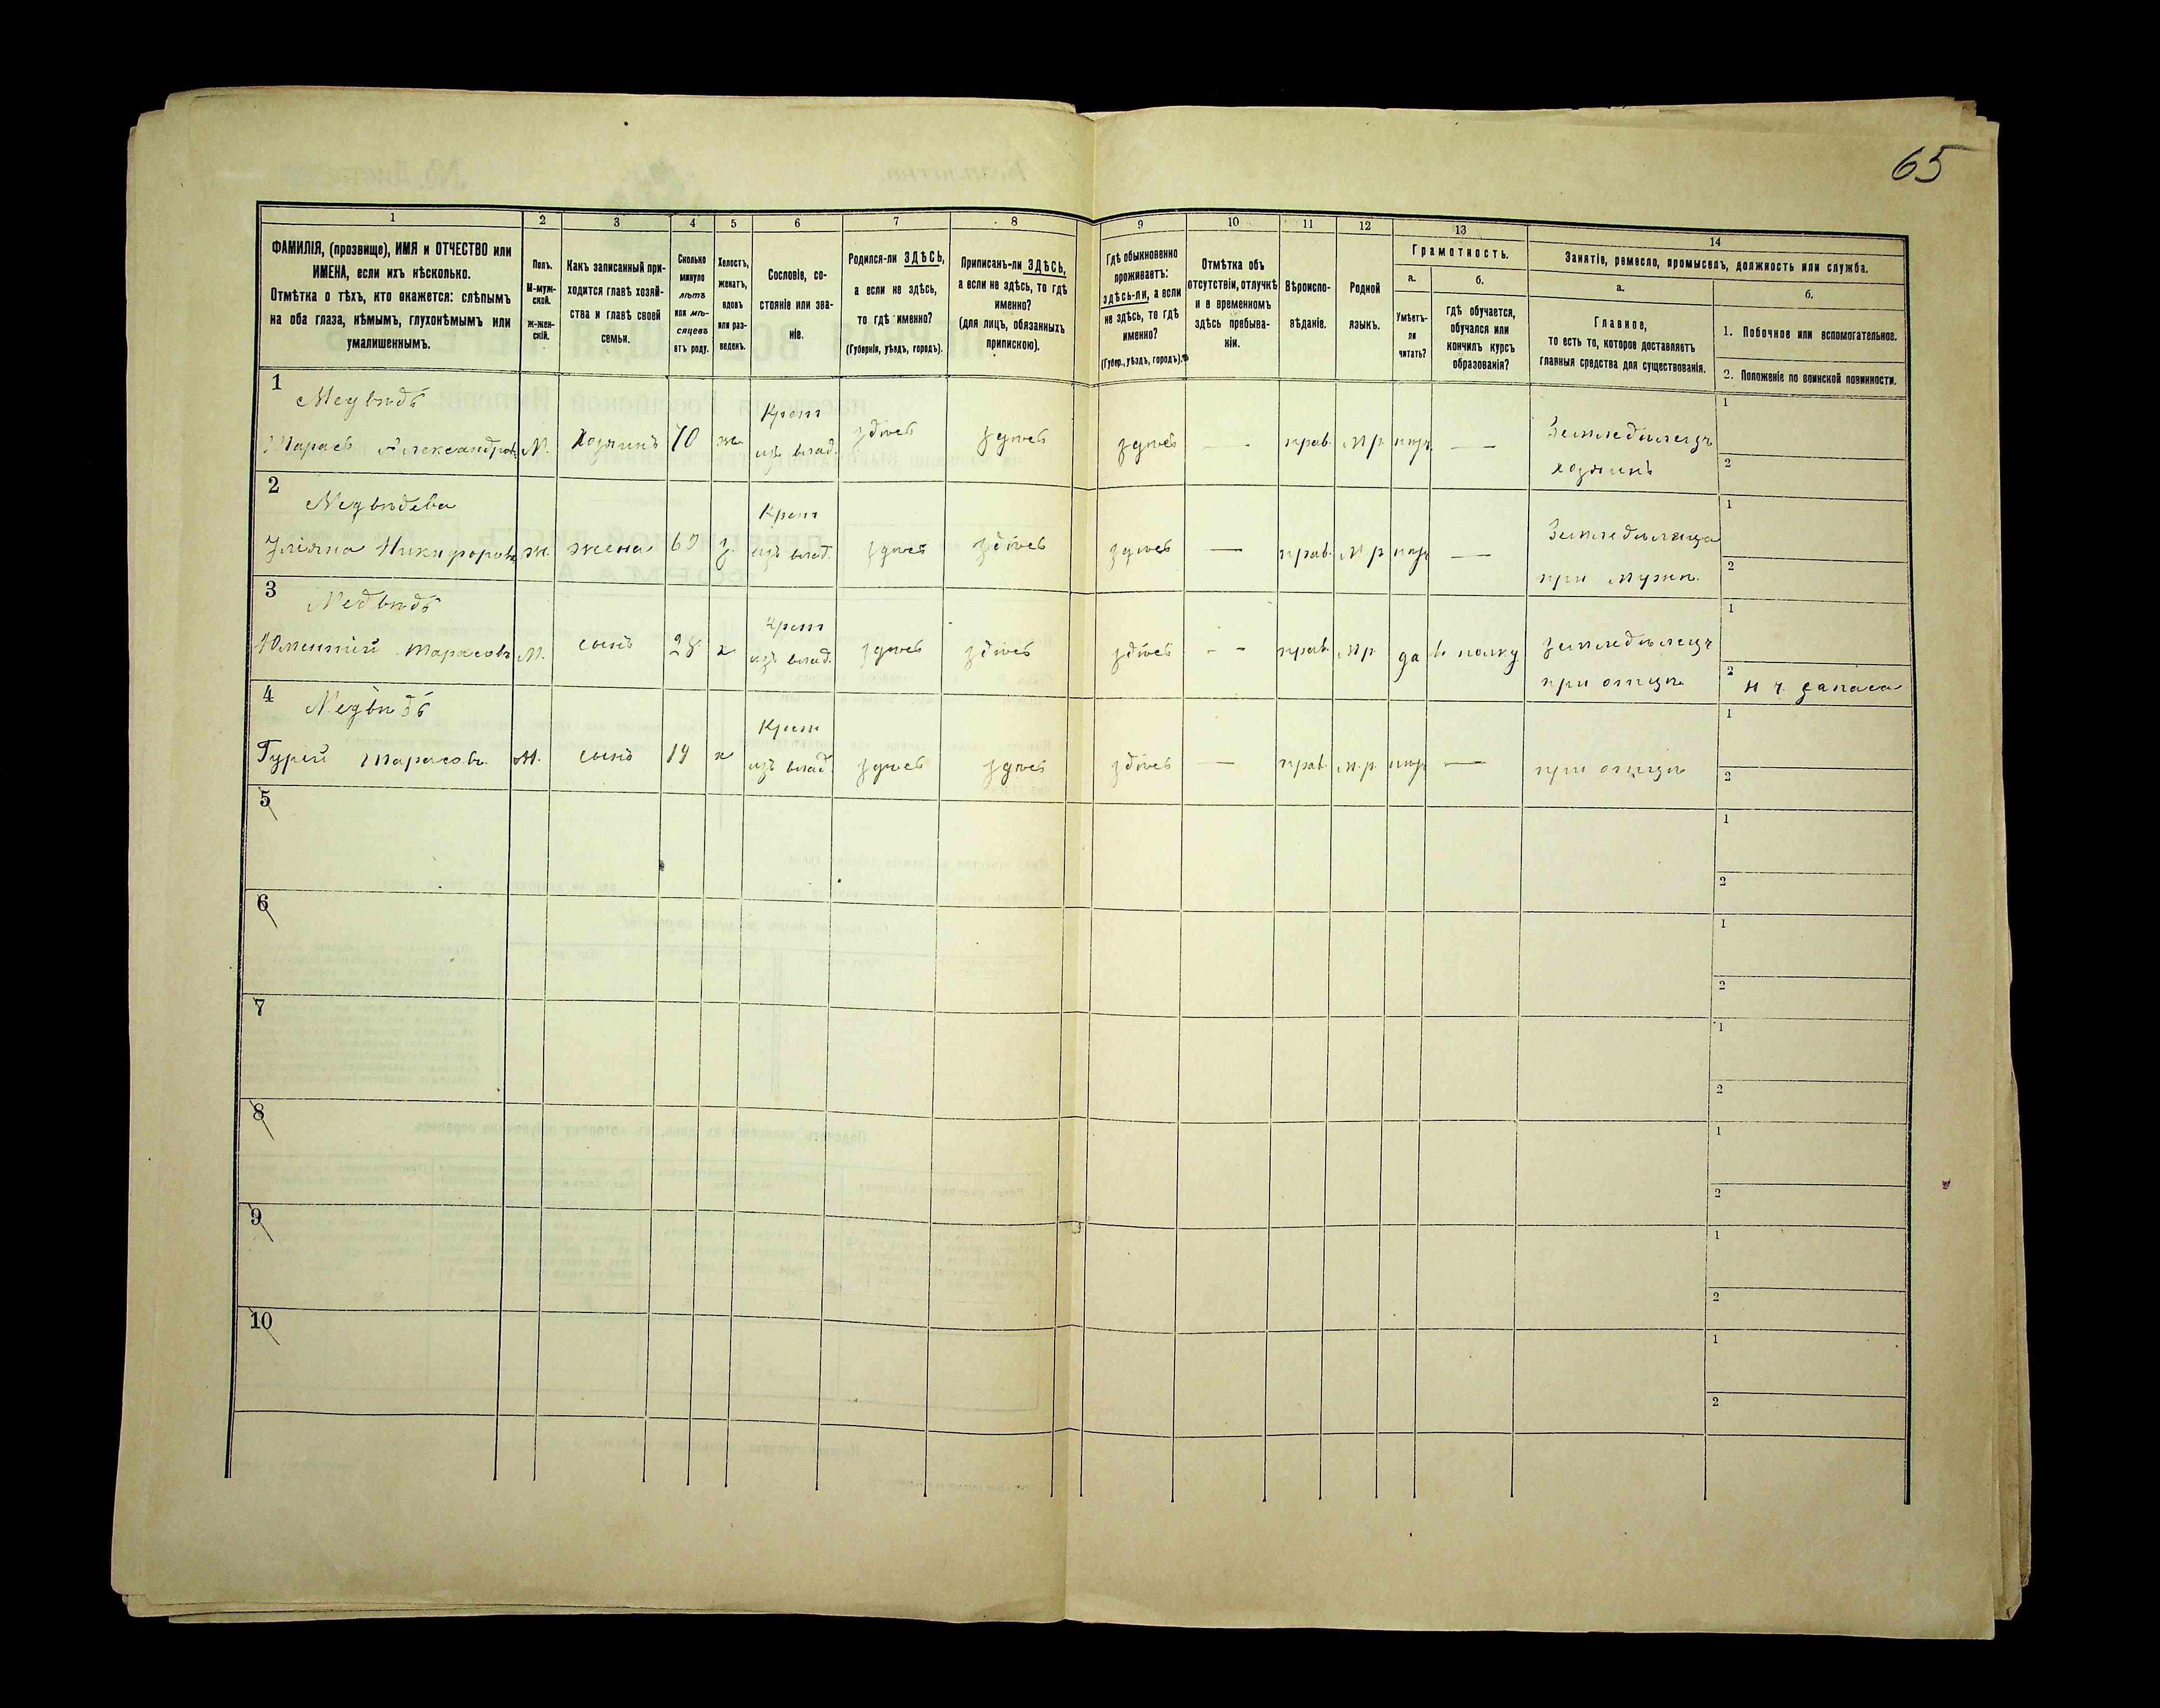 65
1 2 3 4 5 6 7 8 9 10 11 12 13 14
ФАМИЛІЯ, (прозвище), ИМЯ и ОТЧЕСТВО или
ИМЕНА, если ихъ нѣсколько.
Отмѣтка о тѣхъ, кто окажется: слѣпымъ
на оба глаза, нѣмымъ, глухонѣмымъ или
умалишеннымъ.
Полъ.
М-муж-
ской.
ж-жен-
скій.
Какъ записанный при-
ходится главѣ хозяй-
ства и главѣ своей
семьи.
Сколько
минуло
лѣтъ
или мѣ-
сяцевъ
отъ роду.
Холостъ,
женатъ,
вдовъ
или раз-
веденъ.
Сословіе, со-
стояніе или зва-
ніе.
Родился-ли ЗДѢСЬ,
а если не здѣсь,
то гдѣ именно?
(Губернія, уѣздъ, городъ).
Приписанъ-ли ЗДѢСЬ,
а если не здѣсь, то гдѣ
именно?
(для лицъ, обязанныхъ
припискою).
Гдѣ обыкновенно
проживаетъ:
здѣсь-ли, а если
не здѣсь, то гдѣ
именно?
(Губер., уѣздъ, городъ).
Отмѣтка объ
отсутствіи, отлучкѣ
и о временномъ
здѣсь пребыва-
ніи.
Вѣроиспо-
вѣданіе.
Родной
языкъ.
Грамотность.
а.
Умѣетъ-
ли
читать?
б.
Гдѣ обучается,
обучался или
кончилъ курсъ
образованія?
Занятіе, ремесло, промыселъ, должность или служба.
а.
Главное,
то есть то, которое доставляетъ
главныя средства для существованія.
б.
1. Побочное или вспомогательное.
2. Положеніе по воинской повинности.
1 Медвѣдь Крест 1
Тарасъ Александров. М. Хозяинъ 70 ж из влад. здѣсь здѣсь здѣсь — прав. м.р. — Земледѣлецъ
хозяинъ 2
2 Медвѣдева Крест 1
Уліяна Никифоров ж. жена з. из влад. здѣсь здѣсь здѣсь — прав. м.р. — Земледѣлица
при мужѣ 2
3 Медвѣдь Крест 1
Тарасовъ М. сынъ 28 х из влад. здѣсь здѣсь здѣсь - - прав. м.р. да в полку Земледѣлецъ
при отцѣ 2 запаса
4 Медвѣдь Крест 1
Гурій Тарасов. М. сынъ 19 х из влад. здѣсь здѣсь здѣсь — прав. м.р. — при отцѣ 2
5 1
2
6 1
2
7 1
2
8 1
2
9 1
2
10 1
2